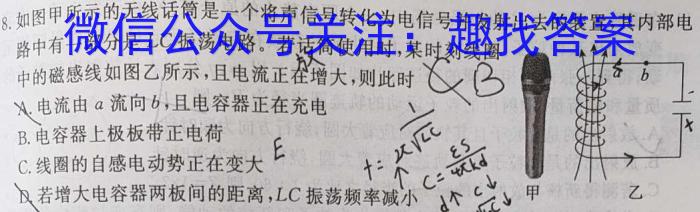 微信公众号关注：趣找答案
8.如图甲所示的无线话筒是一个将声信号转化为电信号并发射出去的装置,其内部电
路中有一部分是LC振荡电路。若话筒使用时,某时刻线圈
中的磁感线如图乙所示,且电流正在增大,则此时
放
A.电流由a流向b,且电容器正在充电
B.电容器上极板带正电荷
C.线圈的自感电动势正在变大 E
D.若增大电容器两板间的距离,LC振荡频率减小
C=εS/4πkd
d↑ C↓
a b
甲 乙